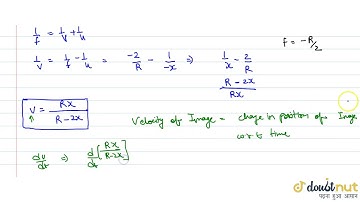 1/f = 1/v + 1/u
f = -R/2
1/v = 1/f - 1/u = -2/R - 1/-x ⇒ 1/x - 2/R
R - 2x / Rx
V = Rx / R - 2x
Velocity of Image = change in position of Image
w.r.to time
dv/dt ⇒ d/dt [Rx / R-2x]
doubtnut
पढ़ना हुआ आसान